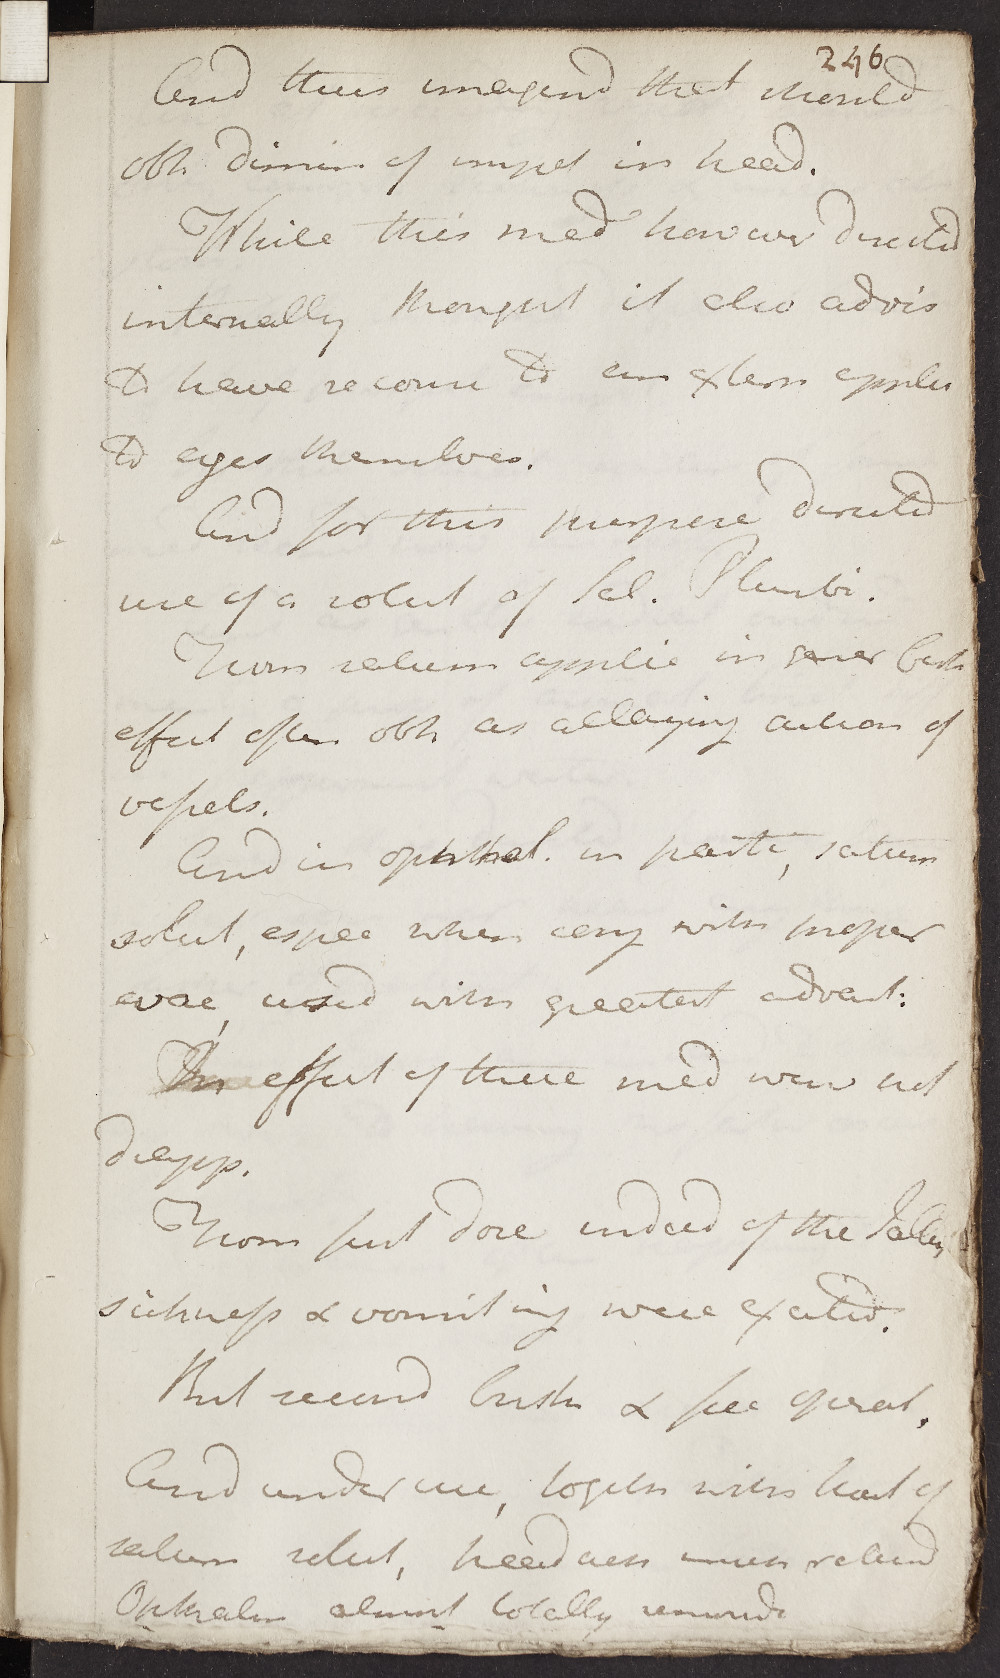 246
And thus imagind that should
obt dimin of impet in head.
While this med however directed
internally thought it also advis
to have recour to an extern applic
to eyes themselves.
And for this purpose directed
use of a solut of Sal. Plumbi.
From saturn applic in gener best
effect often obt as allaying action of
vessels.
And in ophthal. in parti, saturn
solut, espec when conj with proper
evac, used with greatest advant:
The effect of these med were not
disapp.
From first dose indeed of the
sickness & vomiting were excited.
But second better & free operat.
And under use, togeth with that of
saturn solut, head ach much reliev'd
Opthalm almost totally remov'd